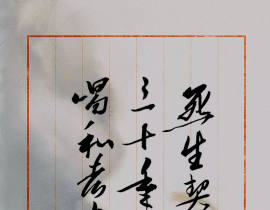 死生契
三十年
唱和去